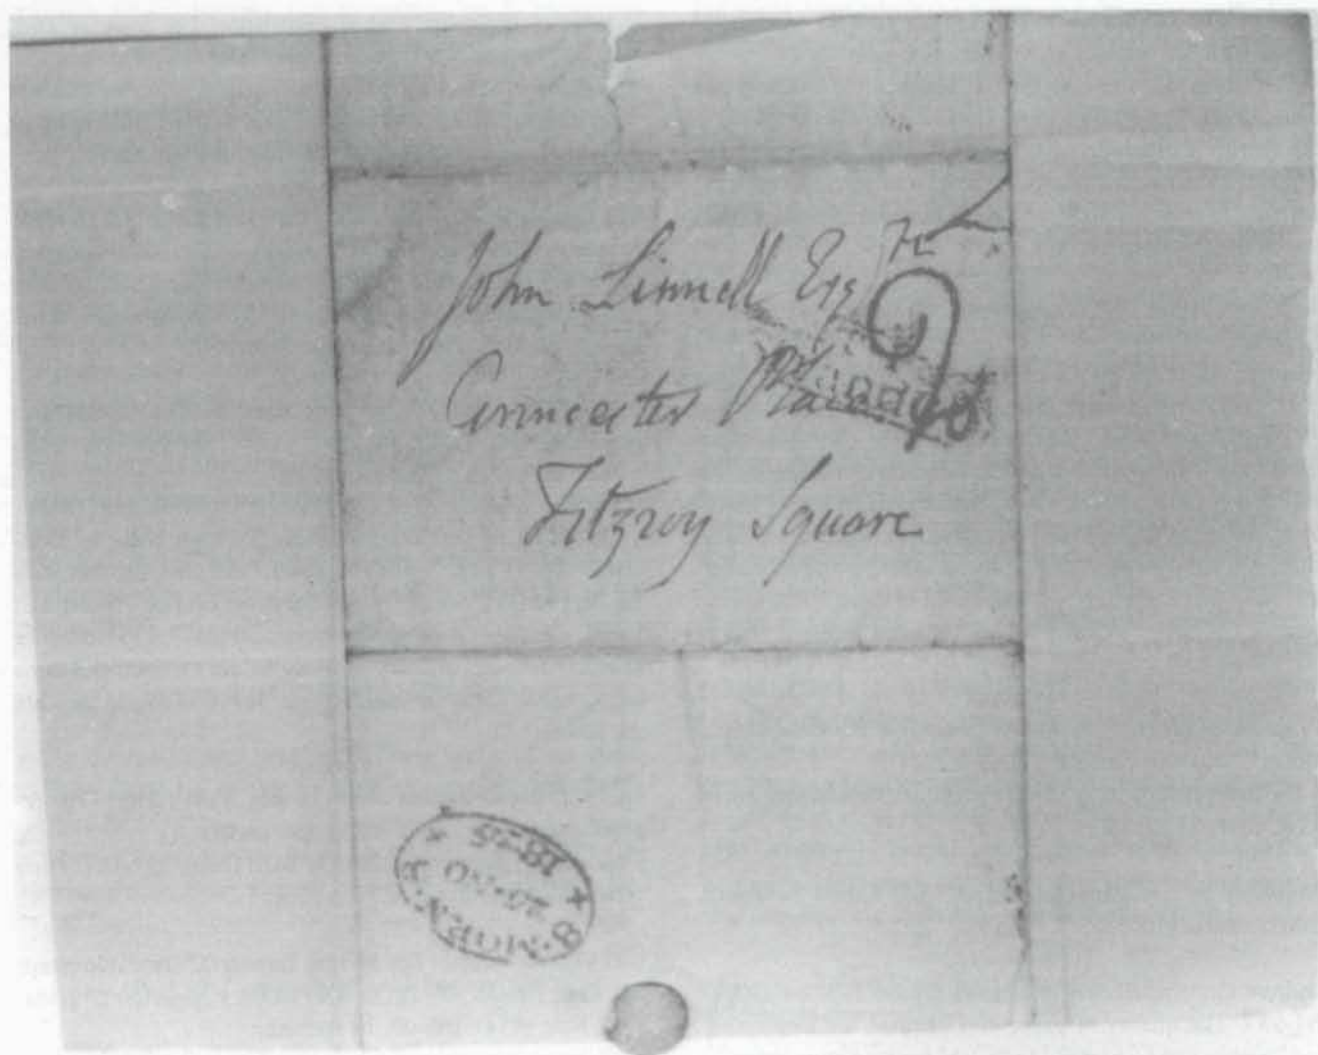 John Linnell Esqre
Cirencester Place
Fitzroy Square
2
8·MORN·8
1825